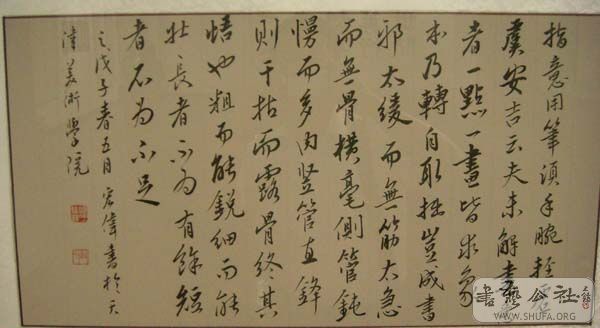 指意用筆須手腕輕虛
虞安吉云夫未解書意
者一點一畫皆求象
本乃轉自取拙豈成書
邪太緩而無筋太急
而無骨橫毫側管鈍
慢而多肉竖管直鋒
則干枯而露骨終其
悟也粗而能銳細而能
壯長者不为有餘短
者不为不足
戊子春五月宏偉書於天
津美術學院
書藝公社
WWW.SHUFA.ORG